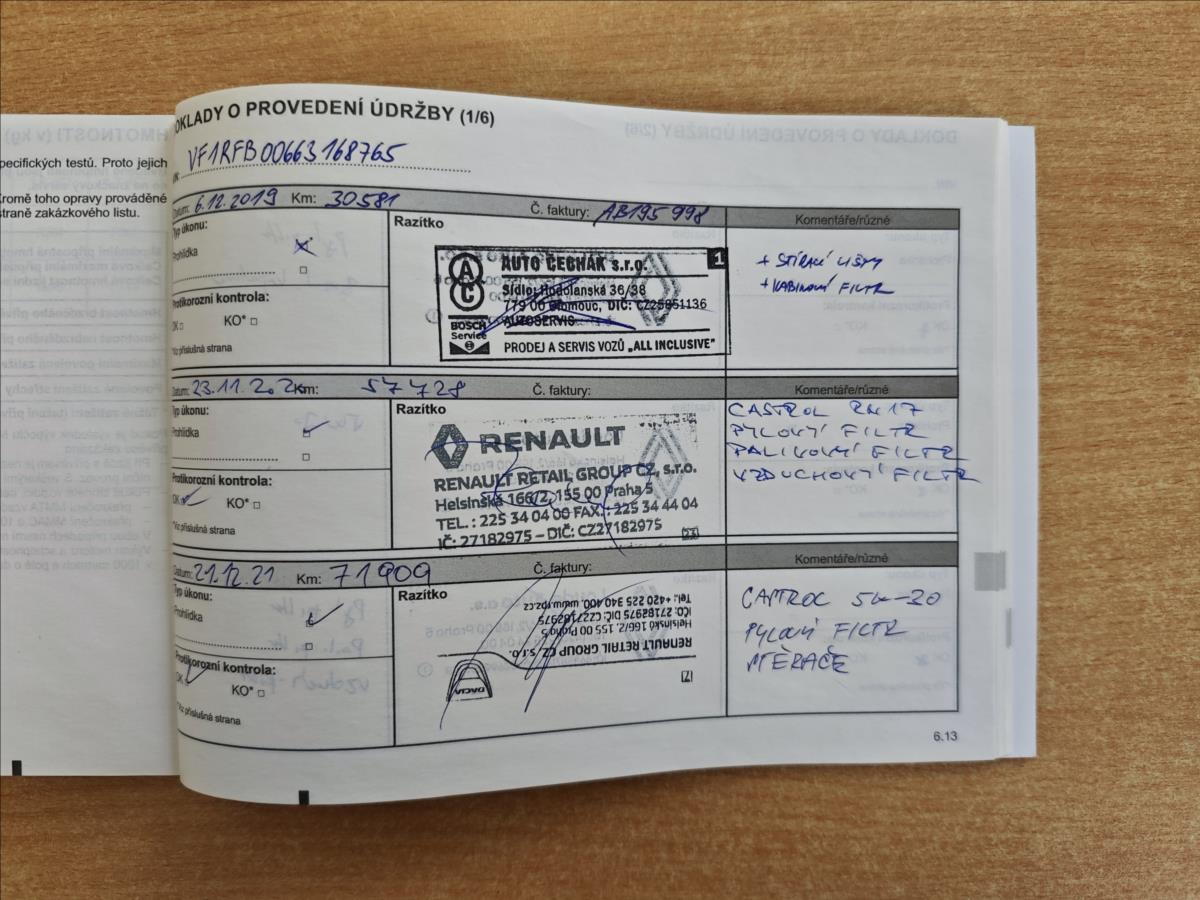 HMOTNOSTI (v kg)
pecifických testů. Proto jejich
Kromě toho opravy prováděné
straně zakázkového listu.
DOKLADY O PROVEDENÍ ÚDRŽBY (2/6)
DOKLADY O PROVEDENÍ ÚDRŽBY (1/6)
VF1RFB00663168765
Datum: 6.12.2019 Km: 30581 Č. faktury: AB195998 Komentáře/různé
Typ úkonu:
Prohlídka
Protikorozní kontrola:
OK □ KO* □
*Viz příslušná strana
Razítko
1
AUTO ČECHÁK s.r.o.
Sídlo: Hodolanská 36/38
779 00 Olomouc, DIČ: CZ25851136
AUTOSERVIS
BOSCH
Service
PRODEJ A SERVIS VOZŮ „ALL INCLUSIVE"
+ STÍRACÍ LIŠTY
+ KABINOVÝ FILTR
Datum: 23.11.202 Km: 57728 Č. faktury: Komentáře/různé
Typ úkonu:
Prohlídka
Protikorozní kontrola:
OK KO* □
*Viz příslušná strana
Razítko
RENAULT
RENAULT RETAIL GROUP CZ, s.r.o.
Helsinská 166/2, 155 00 Praha 5
TEL.: 225 34 04 00 FAX.: 225 34 44 04
IČ: 27182975 – DIČ: CZ27182975
23
CASTROL RN17
PYLOVÝ FILTR
PALIVOVÝ FILTR
VZDUCHOVÝ FILTR
Datum: 21.12.21 Km: 71909 Č. faktury: Komentáře/různé
Typ úkonu:
Prohlídka
Protikorozní kontrola:
OK KO* □
*Viz příslušná strana
Razítko
RENAULT RETAIL GROUP CZ s.r.o.
Helsinská 166/2, 155 00 Praha 5
IČO: 27182975 DIČ: CZ27182975
Tel.: +420 225 340 400, www.rpz.cz
DACIA
CASTROL 5W-30
PYLOVÝ FILTR
STĚRAČE
6.13